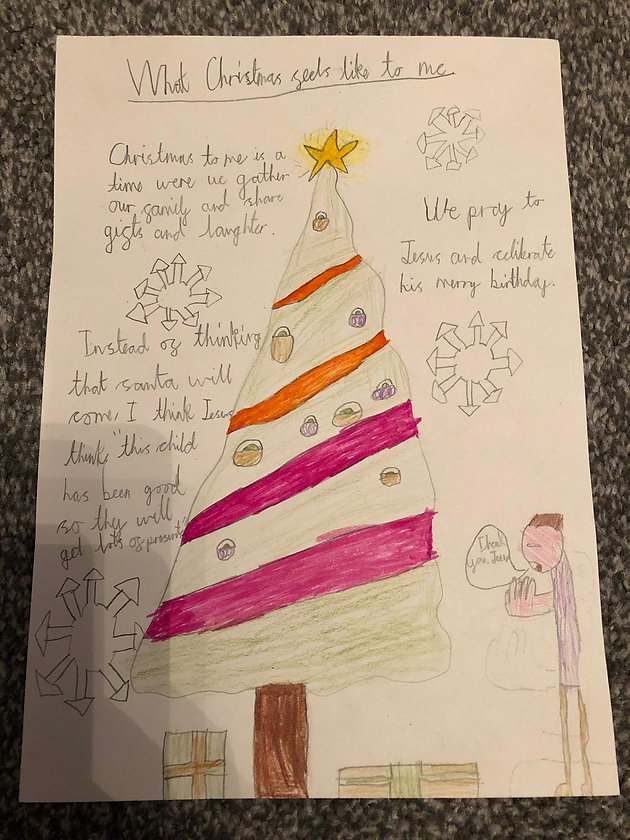 What Christmas feels like to me
Christmas to me is a
time were we gather
our family and share
gifts and laughter.
We pray to
Jesus and celibrate
his merry birthday.
Instead of thinking
that santa will
come, I think Jesus
thinks "this child
has been good
so they will
get lots of presents"
Thank
you Jesus